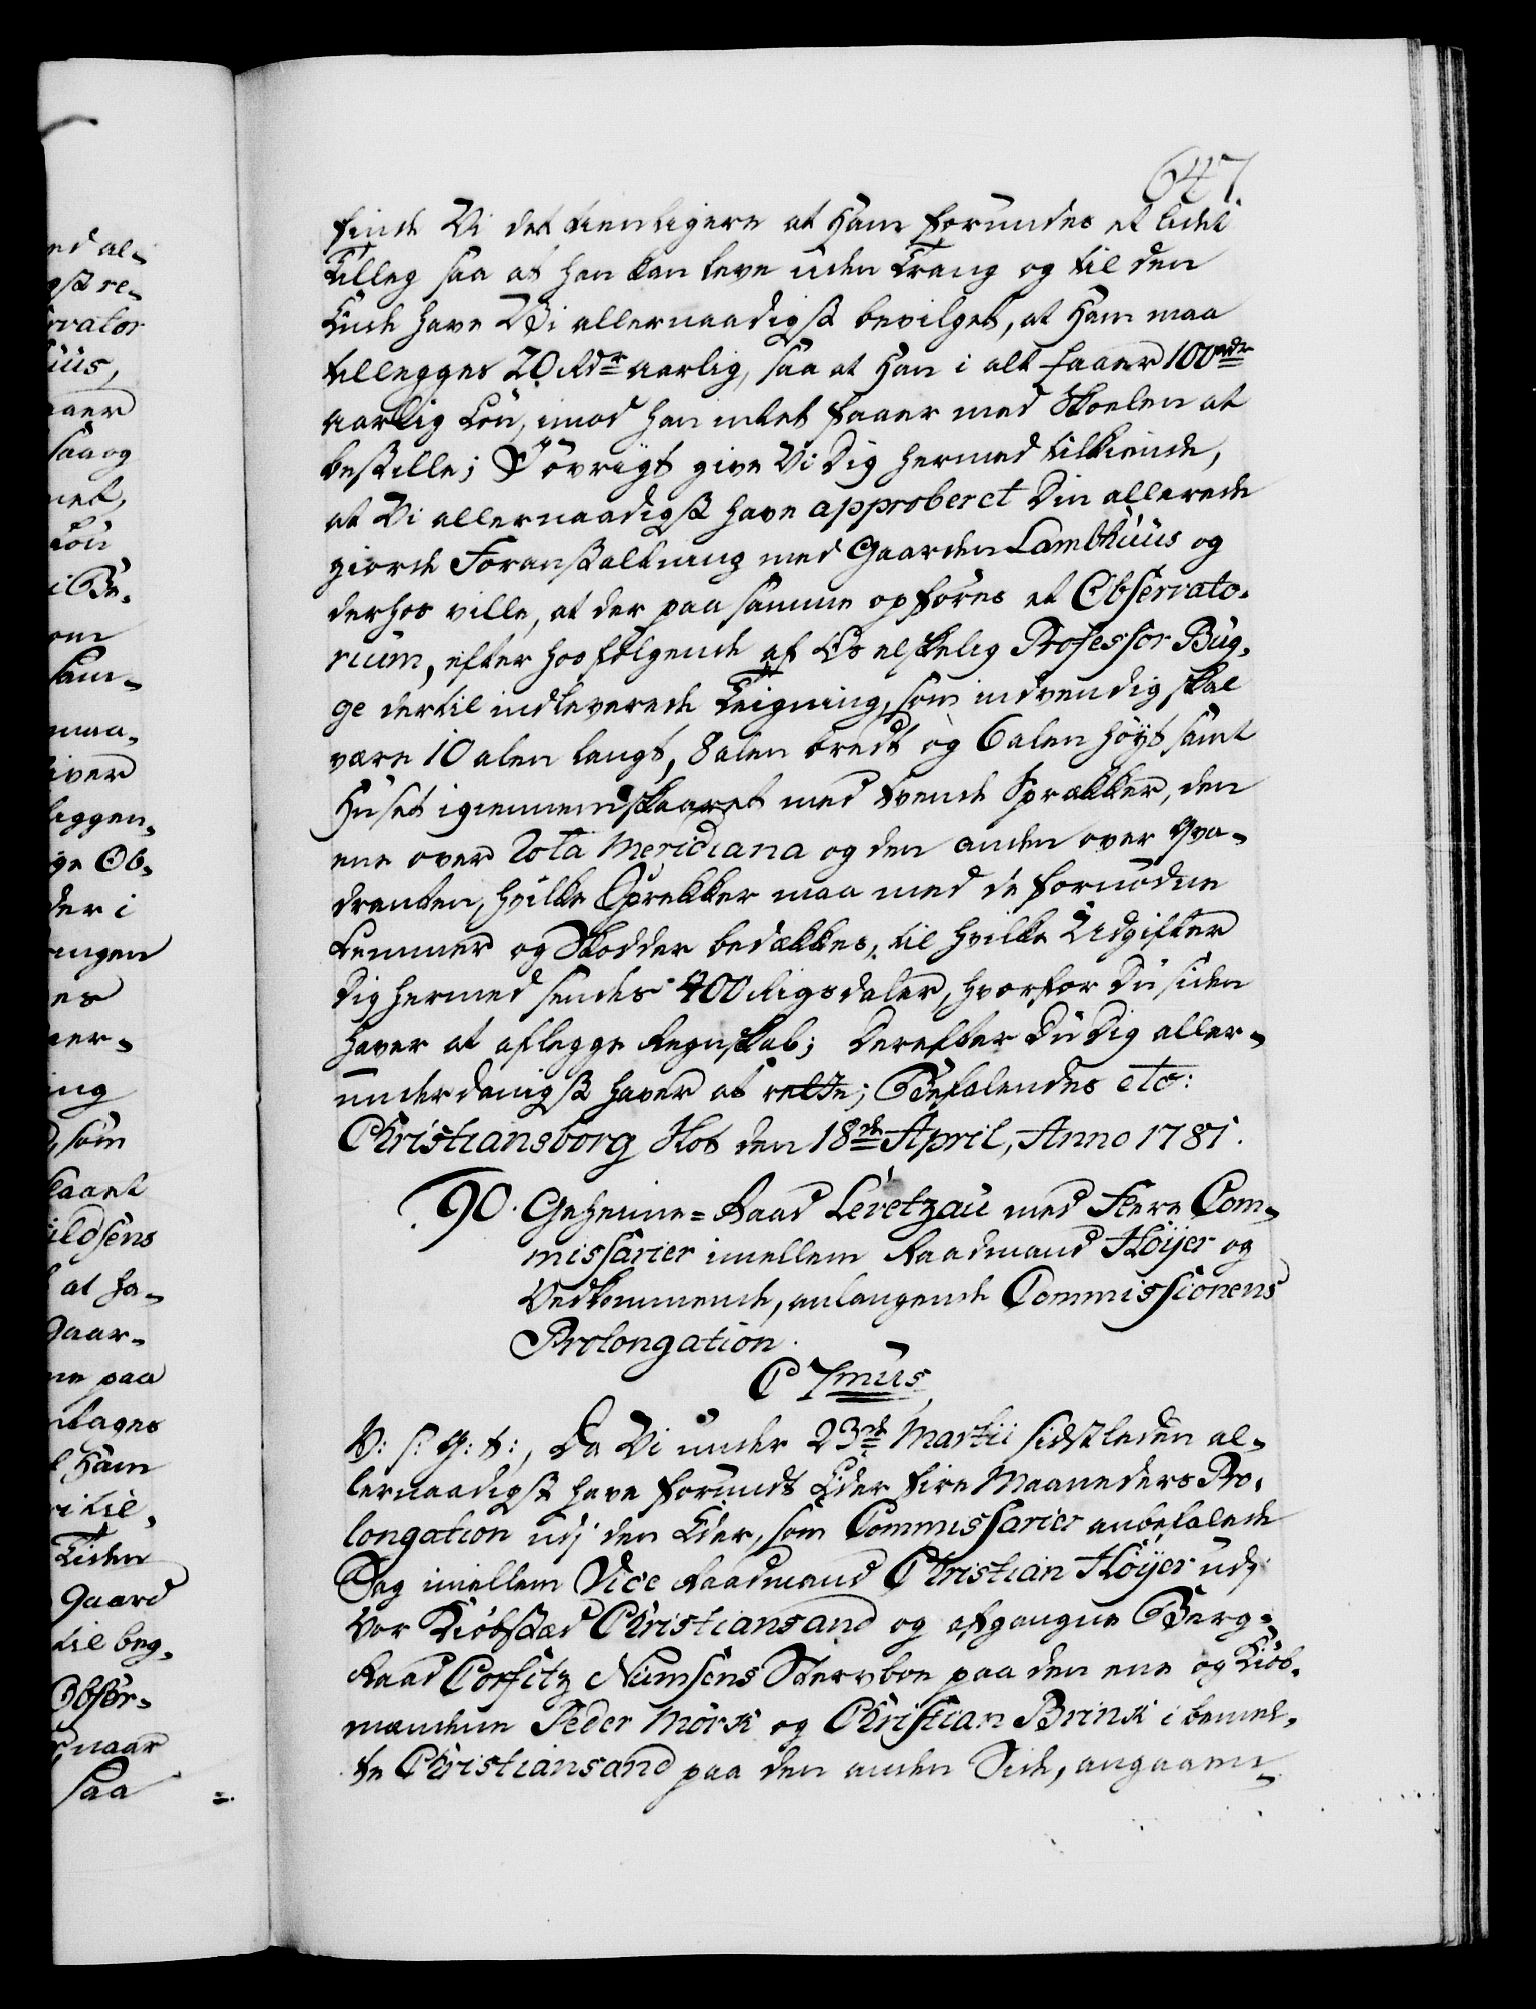 647
finde Vi det tienligere at Ham forundes et lidet
Tilleg saa at han kan leve uden Trang og til den
Ende have Vi allernaadigst bevilget, at Ham maa
tillegges 20 Rdr aarlig, saa at Han i alt faaer 100 rdr
aarlig Løn, imod han intet faaer med Skolen at
bestille; I øvrigt give Vi Dig hermed tilkiende,
at Vi allernaadigst have approberet Din allerede
giorde Foranstaltning med Gaarden Lambhuus og
derhos ville, at der paa samme opføres et Observato-
rium, efter hosfølgende af Os elskelig Professor Bug-
ge dertil indleverede Teigning, som indvendig skal
være 10 alen langt, 8 alen bredt og 6 alen høyt samt
Huset igiennemskaaret med tvende Sprækker, den
ene over Rota Meridiana og den anden over Qva-
dranten, hvilke Sprekker maa med de fornødne
Lemmer og Skodder bedækkes, til hvilke Udgifter
Dig hermed sendes 400 Rigsdaler, hvorfor Du siden
haver at aflegge Regnskab; Derefter Du Dig aller-
underdanigst haver at rette; Befalendes etc:
Christiansborg Slot den 18de April, Anno 1781.
90. Geheime=Raad Levetzau med Flere Com-
missarier imellem Raadmand Høyer og
Vedkommende, anlangende Commissionens
Prolongation.
C 7mus
V: s: G: t:, Da Vi under 23de Martii sidstleden al-
lernaadigst have forundt Eder fire Maaneders Pro-
longation udj den Eder, som Commissarier anbefalede
Sag imellem Vice Raadmand Christian Høyer udj
Vor Kiøbstæd Christiansand og afgangne Berg-
Raad Corfitz Numsens Sterboe paa den ene og Kiøb-
mændene Peder Mørk og Christian Brink i bemel-
te Christiansand paa den anden Side, angaaen-
ed al-
gst re-
rvator
uus,
aaer
saa og
net,
Løn
i Be-
om
sam-
maa-
iver
leggen-
ge Ob-
der i
ingen
es
aer-
ing
, som
kaaret
ildsens
at ha-
Gaar-
ne paa
ntages
Ham
ri til-
Tiden
Gaard
til beg-
Obser-
naar
saa =